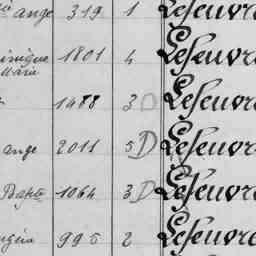 ange 319 1 Lefeuvre
1801 4 Lefeuvre
Marie
1488 3 D Lefeuvre
ange 2011 5 D Lefeuvre
Bapte 1064 3 D Lefeuvre
995 2 Lefeuvre